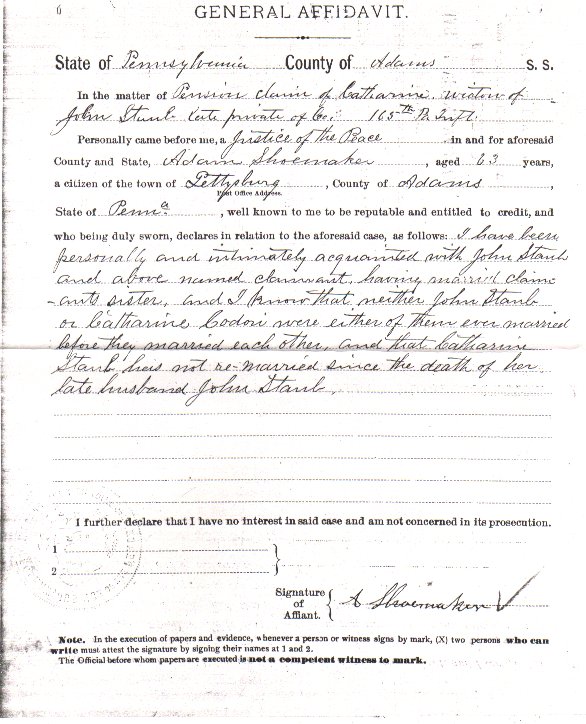 6
GENERAL AFFIDAVIT.
State of Pennsylvania County of Adams S. S.
In the matter of Pension claim of Catharine, widow of
John Staub late private of Co. 165th P. Inft.
Personally came before me, a Justice of the Peace in and for aforesaid
County and State, Adam Shoemaker, aged 63 years,
a citizen of the town of Gettysburg, County of Adams,
Post Office Address.
State of Penna, well known to me to be reputable and entitled to credit, and
who being duly sworn, declares in relation to the aforesaid case, as follows: I have been
personally and intimately acquainted with John Staub
and above named claimant, having married claim
-ants sister, and I know that neither John Staub
or Catharine Codori were either of them ever married
before they married each other, and that Catharine
Staub has not re-married since the death of her
late husband John Staub.
I further declare that I have no interest in said case and am not concerned in its prosecution.
1
2
Signature
of
Affiant.
A Shoemaker
Note. In the execution of papers and evidence, whenever a person or witness signs by mark, (X) two persons who can
write must attest the signature by signing their names at 1 and 2.
The Official before whom papers are executed is not a competent witness to mark.